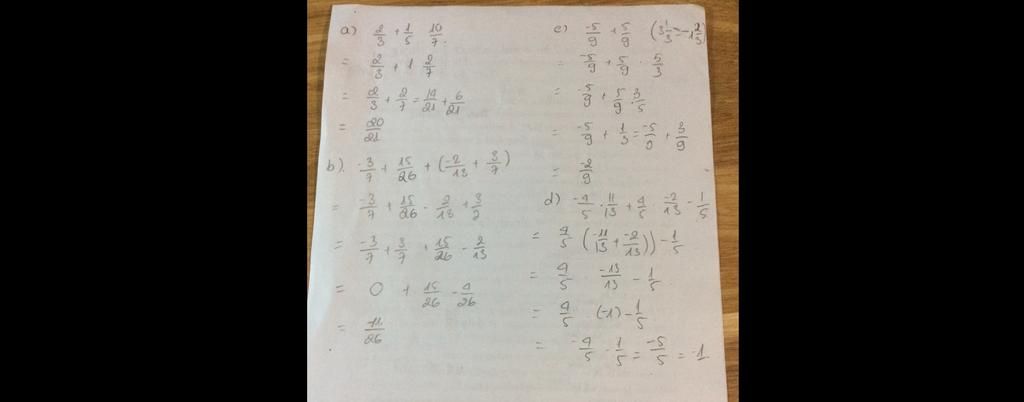 a) 2/3 + 1/5 10/7.
= 2/3 + 1 2/7
= 2/3 + 2/7 = 14/21 + 6/21
= 20/21
b). -3/7 + 15/26 + (-2/13 + 3/7)
= -3/7 + 15/26 - 2/13 + 3/7
= -3/7 + 3/7 + 15/26 - 2/13
= 0 + 15/26 - 4/26
= 11/26
c) -5/9 + 5/9 (
= -5/9 + 5/9 : 5/3
= -5/9 + 5/9 . 3/5
= -5/9 + 1/3 = -5/9 + 3/9
= -2/9
d) -4/5 . 11/13 + 4/5 . -2/13 - 1/5
= 4/5 (-11/13 + -2/13)) - 1/5
= 4/5 -13/13 - 1/5
= 4/5 (-1) - 1/5
= -4/5 - 1/5 = -5/5 = -1